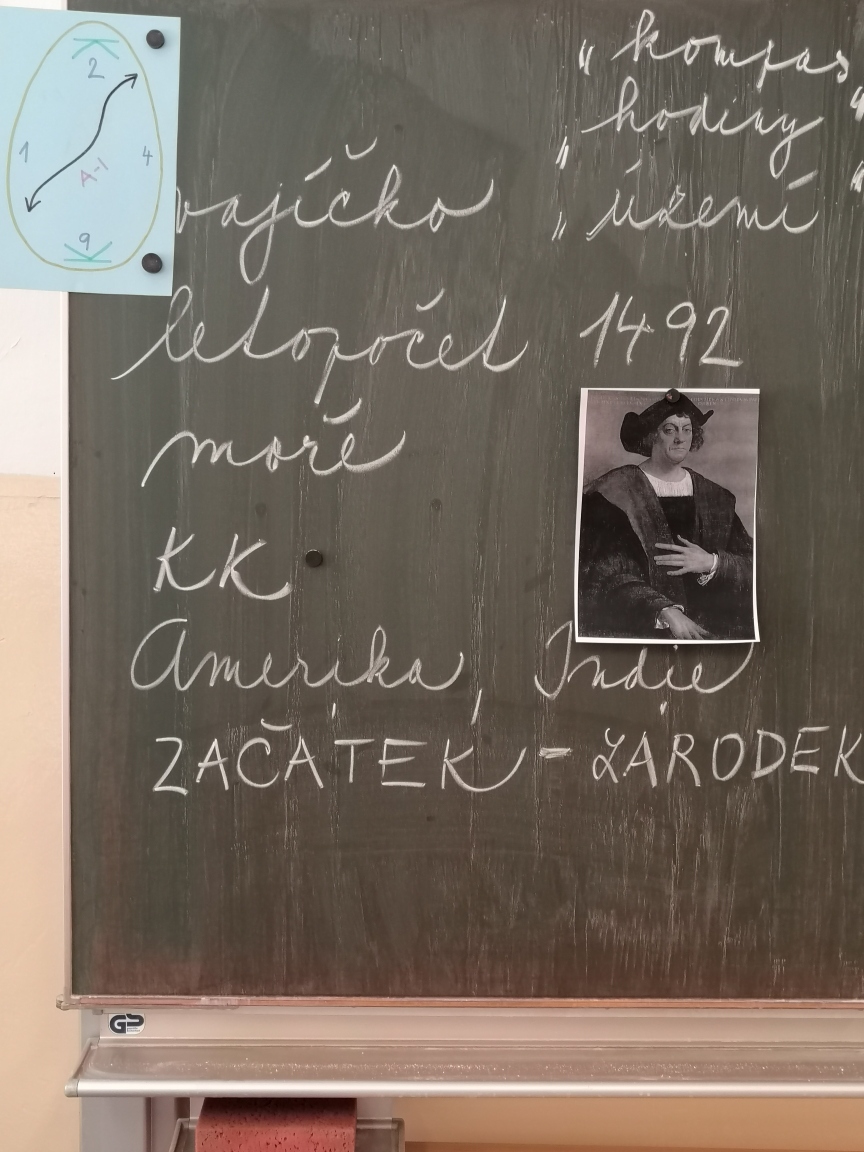 K
2
1 4
A-I
9
K
„kompas“
„hodiny“
vajíčko „území“
letopočet 1492
moře
KK
Amerika, Indie
ZAČÁTEK - ZÁRODEK